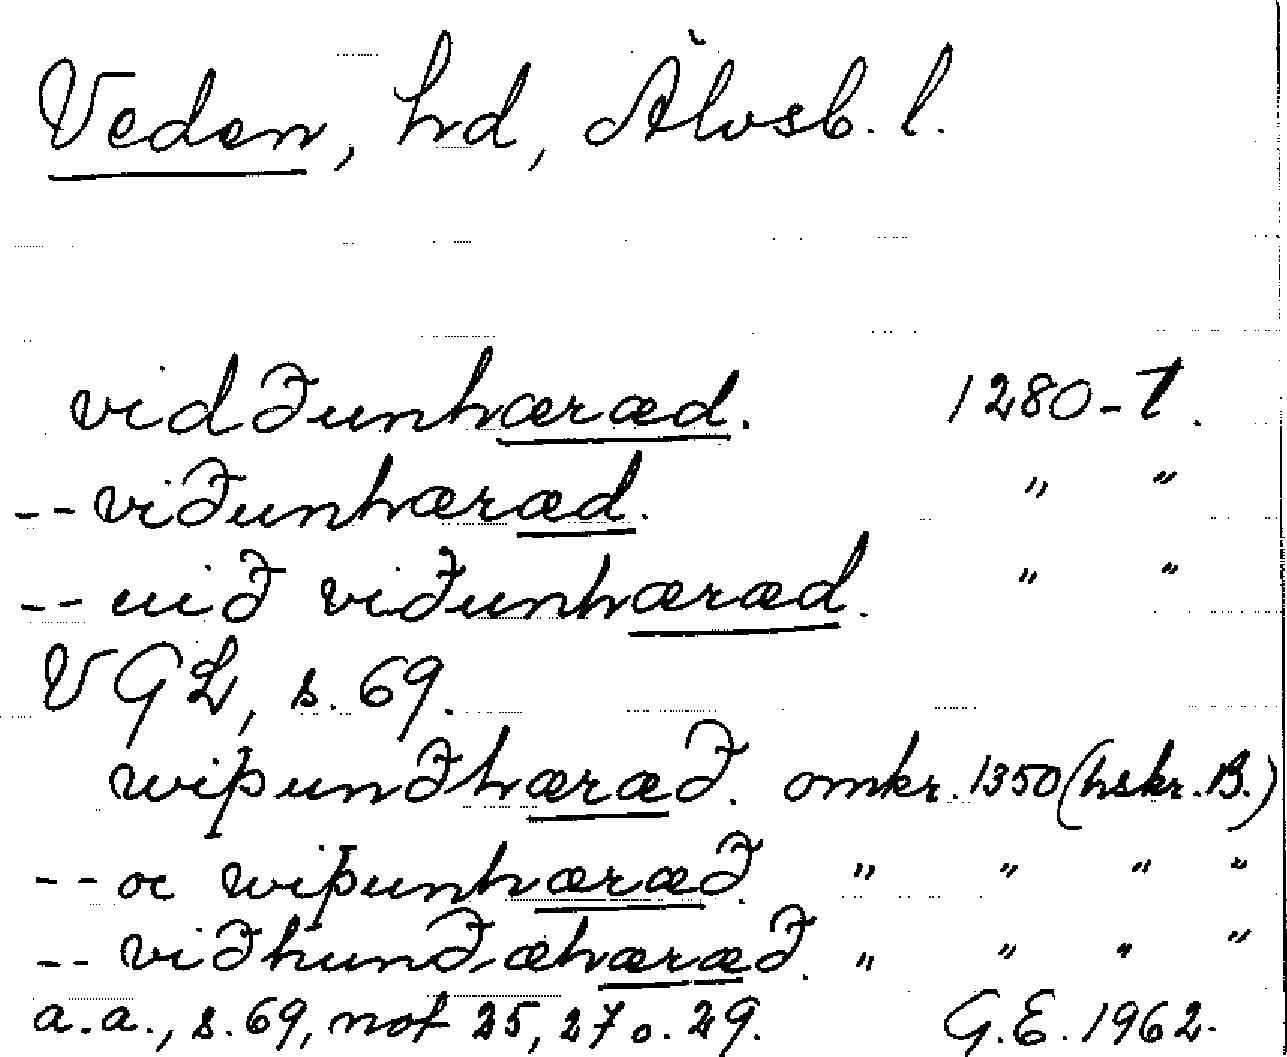 Veden, hd, Älvsb. l.
vidðunhæræd. 1280-t.
-- viðunhæræd. " "
-- uið viðunhæræd. " "
VGL, s. 69.
wiþunðhæræð. omkr. 1350 (hskr. B.)
-- oc wiþunhæræð. " " " "
-- viðhunðæhæræð. " " " "
a.a., s. 69, not 25, 27 o. 29. G.E. 1962.